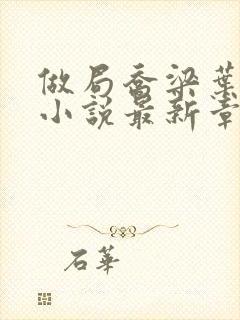 做局乔梁葉
小說最新章
石華